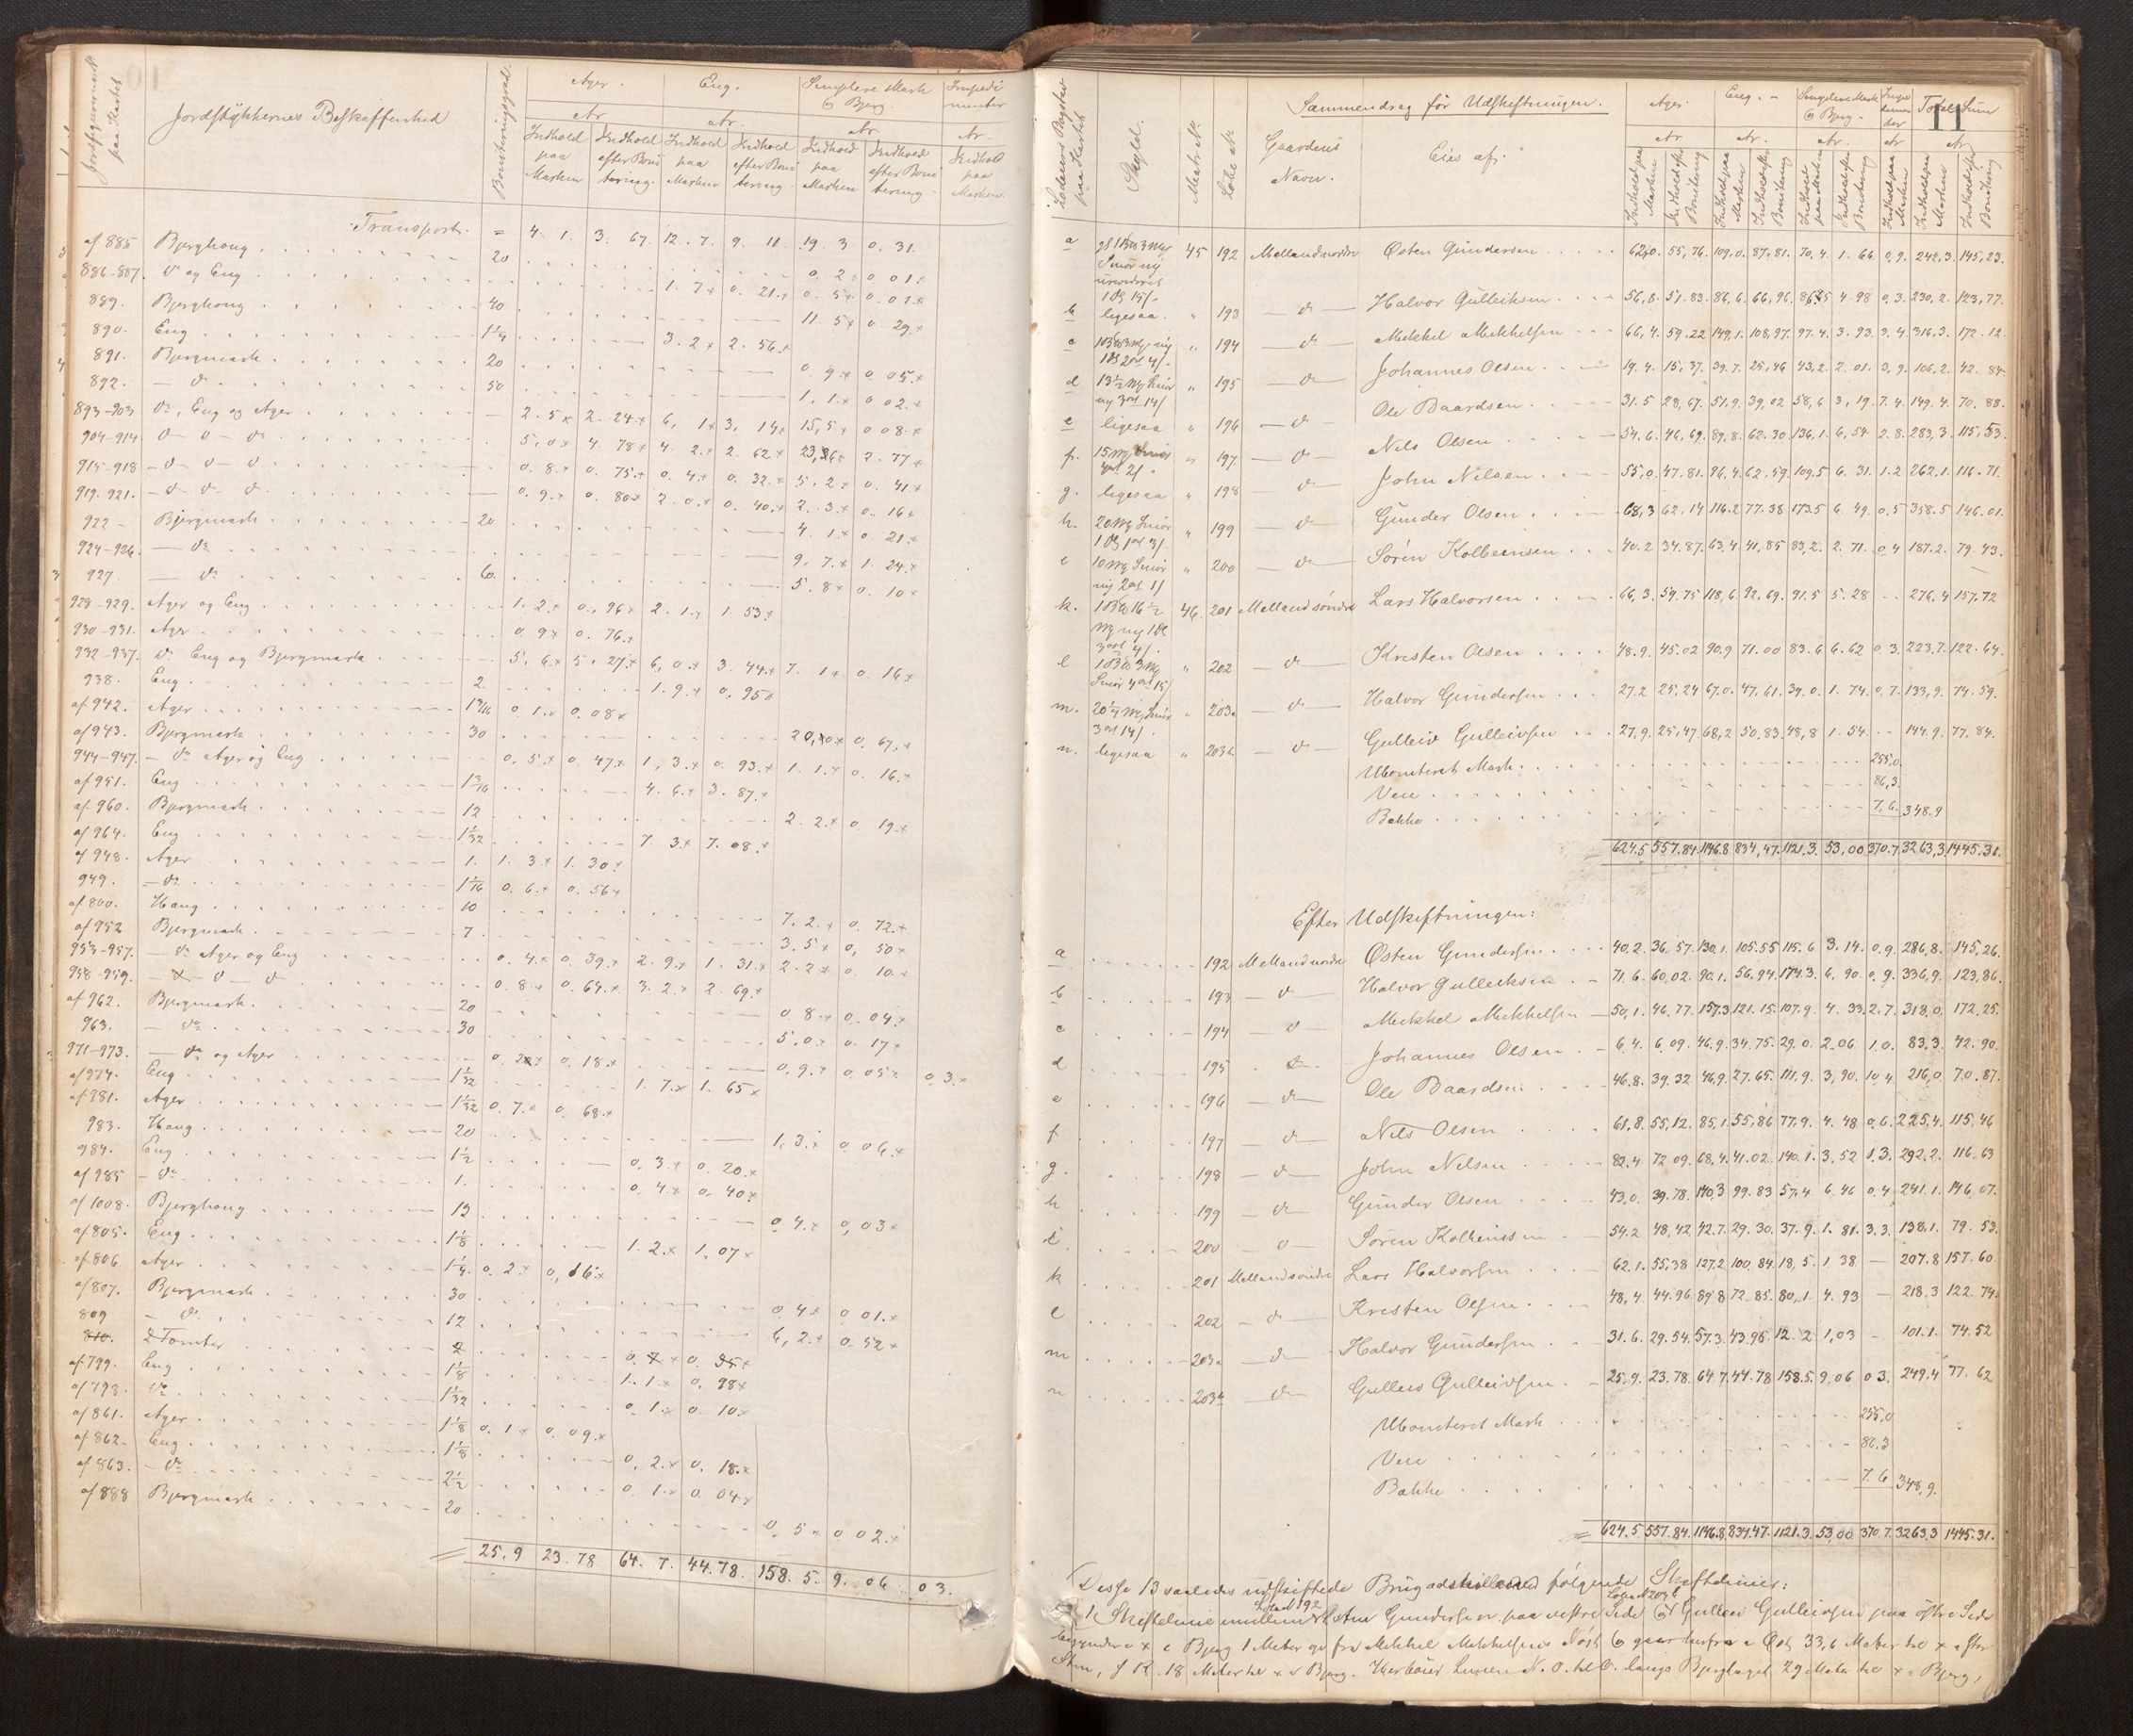 Jordstykkernes Beskaffenhed
Bonitering
Ager. Eng. Simplere Mark & Bjerg. Impedimenter
Ar. Ar. Ar. Ar.
Indhold paa Marken Indhold efter Bonitering. Indhold paa Marken Indhold efter Bonitering. Indhold paa Marken Indhold efter Bonitering. Indhold paa Marken.
Transport. = 4. 1. 3. 67. 12. 7. 9. 11. 19. 3 0. 31.
af 885 Bjerghong 20 0. 2 0 01
886-887. do og Eng 1. 7 0. 21. 0. 5 0. 01
889. Bjerghong 40 11. 5 0. 29
890. Eng 1¼ 3. 2 2. 56
891. Bjergmark 20 0. 9 0 05
892. — do 50 1. 1 0 02
893-903 do, Eng og Ager 2. 5 2. 24 6, 1 3, 14 15, 5 0 08
904-914 do - do - do 5, 0 4 78 4. 2 2. 62 23, 2. 77
915-918 - do - do - do 0. 8 0. 75 0. 4 0. 32 5. 2 0. 41
919. 921. - do do do 0. 9 0. 80 2. 0 0. 40 2. 3 0. 16
922 - Bjergmark 20 4. 1 0. 21
924-926. — do 9. 7 1. 24
927. — do 60. 5. 8 0. 10
928-929. Ager og Eng 1. 2 0. 96 2. 1 1. 53
930-931. Ager 0. 9 0. 76
932-937. do Eng og Bjergmark 5. 6 5. 27 6, 0 3. 44 7. 1 0. 16
938. Eng 2. 1. 9 0, 95
af 942. Ager 0 1. 0.08
af 943. Bjergmark 30 20, 0 0. 67
944-947. - do Ager og Eng 0. 5 0. 47 1, 3 0. 93 1. 1 0. 16
af 951. Eng 4. 6 3. 87
af 960. Bjergmark 12 2. 2 0 19
af 964. Eng 1 1/32 7. 3 7. 08
af 948. Ager 1. 1. 3 1. 30
949. — do 1 1/16 0. 6 0. 56
af 800. Haug 10 7. 2 0. 72
af 952 Bjergmark 7 3. 5 0, 50
953-957. — do Ager og Eng 0. 4 0. 39 2. 9 1. 31 2. 2 0. 10
958-959. — do — do 0. 8 0. 64 3. 2 2. 69
af 962. Bjergmark 20 0 8 0. 04
963. — do 30 5. 0 0. 17
971-973. — do og Ager 0. 2 0. 18 0. 9 0. 05 0. 3
af 974. Eng 1 1/32 1. 7 1. 65
af 981. Ager 1 1/32 0. 7 0, 68
983. Haug 20 1. 3 0 06
984. Eng 1½ 0. 3 0. 20
af 985 - do 1. 0. 4 0. 40
af 1008. Bjerghong 13 0 4. 0, 03
af 805. Eng 1⅛ 1. 2 1, 07
af 806 Ager 1¼. 0. 2 0, 16
af 807. Bjergmark 30 0 4 0 01
809 - do 12 6, 2 0. 52
810. Tomter 2
af 799. Eng 1⅛ 1. 1 0. 98
af 798. do 1 1/32 0. 1 0. 10
af 861. Ager 1⅛ 0. 1 0. 09
af 862. Eng 1⅛ 0. 2 0. 18
af 863. - do 2½ 0. 1 0 04
af 888 Bjergmark 20 0. 5 0 02
25. 9 23. 78 64. 7. 44.78. 158. 5. 9. 06. 03.
11
Sammendrag för Udskiftningen.
Skyld. Matr. No. Løbe No. Gaardens Navn. Eies af. Ager. Eng. Simplere Mark & Bjerg. Impedimenter Total Sum
a 45 192 Mellandnordre Østen Gundersen 62,0. 55, 76. 109, 0. 87, 81. 70, 4. 1. 66. 0, 9. 242, 3. 145, 23.
b ligesaa. " 193 — do — Halvor Gulleiksen 56, 8. 51. 83. 86, 6. 66, 96. 4 98 0, 3. 230, 2. 123, 77.
c " 194 — do Mikkel Mikkelsen 66, 4. 59. 22 149, 1. 108, 97. 97. 4. 3. 93. 3. 4 316, 3. 172. 12.
d " 195 — do Johannes Olsen 19. 4. 15, 37. 39. 7. 25, 46 43, 2. 2. 01. 3, 9. 106, 2. 42. 84.
e ligesaa " 196 — do — Ole Baardsen 31. 5 28, 67. 51, 9. 39, 02 58, 6 3, 19. 7. 4. 149, 4. 70. 88.
f. " 197. — do — Nils Olsen 54. 6. 46, 69. 89, 8. 62. 30. 136, 1. 6, 54 2. 8. 283, 3. 115, 53.
g. ligesaa " 198 — do John Nilsen 55, 0. 47. 81. 96, 4. 62, 59. 109, 5 6. 31. 1. 2 262, 1. 116. 71.
h. " 199 — do Gunder Olsen 68, 3 62. 14 116. 2 77. 38 173. 5 6. 49. 0. 5 358. 5 146. 01.
i " 200 — do Sørén Kolbeensen 40. 2 34. 87. 63, 4. 41, 85 83, 2. 2. 71. 0, 4 187. 2. 79. 43.
k. 46. 201 Mellandsøndre Lars Halvorsen 66, 3. 59. 75 118, 6 92. 69. 91. 5 5. 28 276, 4 157. 72
l " 202 — do — Kristen Olsen 48. 9. 45. 02 90. 9 71. 00 83. 6 6. 62 0. 3. 223, 7. 122. 64.
m. " 203a — do — Halvor Gundersen 27. 2 25, 24 67. 0. 47, 61. 39, 0. 1. 74. 0, 7 133, 9. 74. 59.
n. ligesaa " 203b — do — Gulleiv Gulleivsen 27, 9. 25, 47. 68, 2. 50, 83. 48, 8 1. 54. 144. 9. 77, 84.
Uboniteret Mark 255, 0.
Veie 86, 3.
Bække 7. 6. 348. 9
624. 5 557. 84 1146. 8 834, 47. 1121, 3. 53, 00 370. 7. 3263, 3 1445. 31.
Efter Udskiftningen:
a 192 Mellandnordre Østen Gundersen 40, 2. 36, 57. 130, 1. 105. 55 115. 6 3. 14. 0, 9. 286, 8. 145, 26.
b 193 — do Halvor Gulleiksen 71, 6. 60, 02. 90, 1. 56, 94. 174, 3. 6, 90. 0, 9. 336, 9. 123, 86.
c 194 — do Mikkel Mikkelsen 50, 1. 46, 77. 157, 3 121. 15. 107. 9. 4. 33. 2. 7. 318, 0. 172, 25.
d 195 Johannes Olsen 6, 4. 6, 09. 46, 9. 34, 75. 29. 0. 2. 06 1, 0. 83, 3. 42. 90.
e 196 — do — Ole Baardsen 46. 8. 39. 32 46, 9. 27. 65. 111, 9. 3, 90. 10, 4. 216, 0 70. 87.
f 197 — do — Nils Olsen 61, 8. 55, 12. 85, 1. 55, 86 77, 9. 4. 48. 0, 6. 225, 4. 115, 46
g. 198 — do John Nilsen 82. 4 72 09. 68, 4. 41. 02. 140. 1. 3, 52 1. 3. 292, 2. 116, 63
h 199 — do — Gunder Olsen 43, 0. 39. 78. 140, 3 99. 83 57, 4 6. 46 0, 4. 241, 1. 146, 07.
i 200 — do — Sören Kolbeensen 54. 2 48, 42 42. 7. 29. 30. 37. 9. 1. 81. 3. 3. 138. 1. 79. 53.
k 201 Mellandsøndre Lars Halvorsen 62. 1. 55, 38 127, 2 100, 84. 18, 5. 1 38 — 207. 8 157. 60
l 202 — do — Kristen Olsen 48, 4 44. 96 89 8 72. 85. 80, 1. 4. 93 — 218. 3 122. 74.
m 203a — do Halvor Gundersen 31. 6. 29. 54. 57. 3. 43. 95. 12. 2. 1, 03 - 101. 1. 74. 52
n 203b — do Gulleiv Gulleivsen 25, 9. 23. 78. 64. 7. 44. 78 158. 5. 9, 06 0 3. 249. 4 77. 62
Uboniteret Mark 255, 0
Veie 86. 3
Bække 7. 6 348, 9.
624. 5 557. 84. 1146. 8. 834. 47. 1121. 3. 53, 00 370. 7. 3263. 3 1445. 31.
Disse 13 saaledes udskiftede Brug adskilles ved følgende Skiftelinier:
1 Skiftelinie mellem Østen Gundersen paa vestre Side & Gulleiv Gulleivsen paa östre Side
begynder i x i Bjerg 1 Meter fra Mikkel Mikkelsens Nøst & gaar herfra i Øst 33,6 Meter til x i stor
Sten, 18 Meter til x i Bjerg. Herfra bøier Linien N. O. til O. langs Bjerglaget 29 Meter til x i Bjerg,